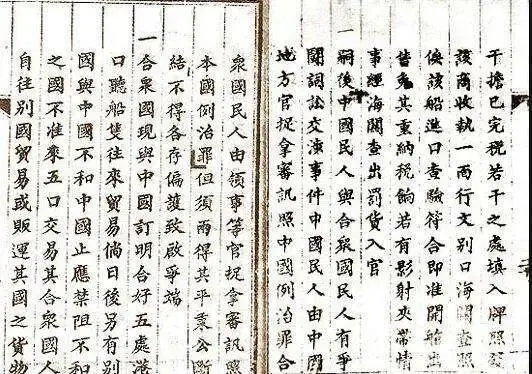 干擔已完稅若干之處填入牌照發
該商收執一面行文別口海關查照
俟該船進口查驗符合即准開艙出
售免其重納稅餉若有影射夾帶情
事經海關查出罰貨入官
一嗣後中國民人與合衆國民人有爭
鬭詞訟交涉事件中國民人由中國
地方官捉拿審訊照中國例治罪合
衆國民人由領事等官捉拿審訊照
本國例治罪但須兩得其平秉公斷
結不得各存偏護致啟爭端
一合衆國現與中國訂明合好五處港
口聽船隻往來貿易倘日後另有別
國與中國不和中國止應禁阻不和
之國不准來五口交易其合衆國人
自往別國貿易或販運其國之貨物